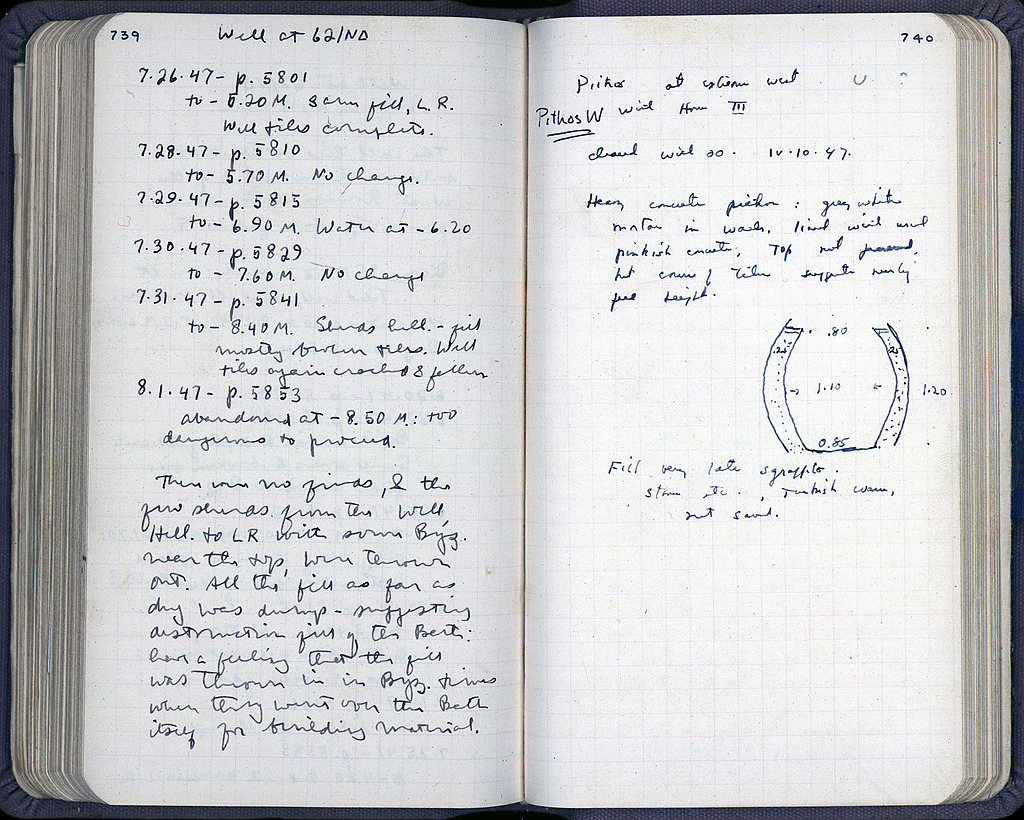 739
Well at 62/ND
7.26.47 - p. 5801
to - 5.20 M. Same fill, L.R.
Well tiles complete.
7.28.47 - p. 5810
to - 5.70 M. No change.
7.29.47 - p. 5815
to - 6.90 M. Water at - 6.20
7.30.47 - p. 5829
to - 7.60 M. No change
7.31.47 - p. 5841
to - 8.40 M. Sherds hell. - fill
mostly broken tiles. Well
tiles again cracked & fallen
8.1.47 - p. 5853
abandoned at - 8.50 M.: too
dangerous to proceed.
There were no finds, & the
few sherds from the well
Hell. to LR with some Byz.
near the top, were thrown
out. All the fill as far as
dug was dump - suggesting
destruction fill of the Bath:
have a feeling that the fill
was thrown in in Byz. times
when they went over the Bath
itself for building material.
740
Pithos at extreme west U ?
Pithos W with Hou III
closed with 20. IV.10.47.
Heavy concrete pithos: grey white
mortar in walls, lined with used
pinkish concrete, Top not preserved,
but course of tiles suggests nearly
full height.
.80
.25 .25
1.10 1.20
0.85
Fill very late sgraffito.
stone etc., Turkish ware,
not saved.